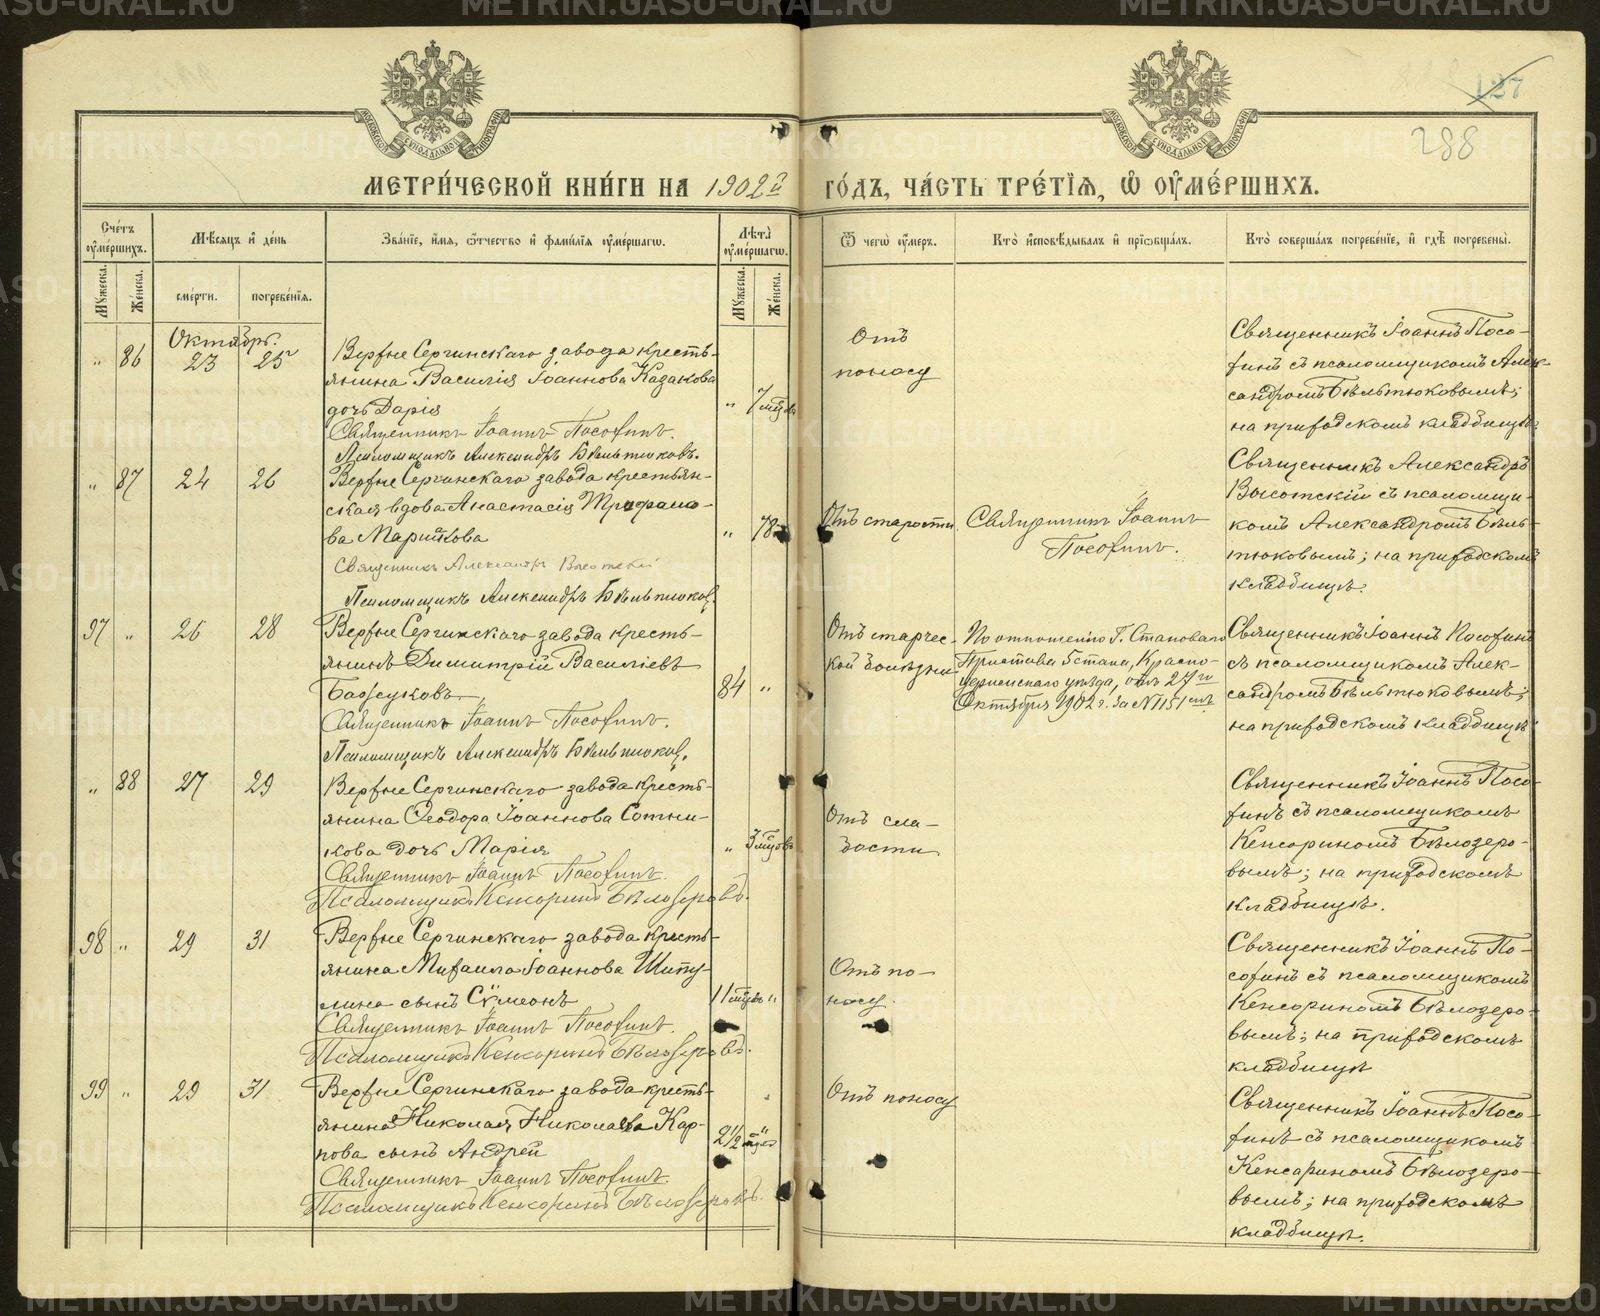 127
288
МЕТРИ́ЧЕСКОЙ КНИ́ГИ НА 1902й ГО́ДЪ, ЧА́СТЬ ТРЕ́ТІЯ, Ѡ ОУМЕ́РШИХЪ.
Сче́тъ оумершихъ.
Мужеска.
Женска.
Мѣсяцъ и день
сме́рти.
погребе́нія.
Зва́ніе, и́мя, ѻтчество и фами́лія оуме́ршагѡ.
Лѣта̀ оуме́ршагѡ.
Мужеска.
Женска.
Ѿ чегѡ̀ оу́меръ.
Кто̀ исповѣ́дывалъ и прїѡбща́лъ.
Кто̀ соверша́лъ погребе́ніе, и гдѣ̀ погребены̀.
Октябрь.
" 86 23 25
Верхне Сергинскаго завода кресть-
янина Василія Іоаннова Казакова
дочь Дарія
" 7 мцовъ
Священникъ Іоаннъ Посохинъ.
Псаломщикъ Александръ Бѣльтюковъ.
Отъ
поносу
Священникъ Іоаннъ Посо-
хинъ съ псаломщикомъ Алек-
сандромъ Бѣльтюковымъ;
на приходскомъ кладбищѣ.
" 87 24 26
Верхне Сергинскаго завода крестьян-
ская вдова Анастасія Трофимо-
ва
" 78
Священникъ Александръ Высотскій
Псаломщикъ Александръ Бѣльтюковъ.
Отъ старости
Священникъ Іоаннъ
Посохинъ.
Священникъ Александръ
Высотскій съ псаломщи-
комъ Александромъ Бѣль-
тюковымъ; на приходскомъ
кладбищѣ.
97 " 26 28
Верхне Сергинскаго завода кресть-
янинъ Димитрій Василіевъ
84 "
Священникъ Іоаннъ Посохинъ.
Псаломщикъ Александръ Бѣльтюковъ.
Отъ старчес-
кой болѣзни
По отношенію Г. Становаго
Пристава 5 стана, Красно-
уфимскаго уѣзда, отъ 27го
Октября 1902 г. за № 1151мъ
Священникъ Іоаннъ Посохинъ
съ псаломщикомъ Алек-
сандромъ Бѣльтюковымъ;
на приходскомъ кладбищѣ
" 88 27 29
Верхне Сергинскаго завода кресть-
янина Ѳеодора Іоаннова Сотни-
кова дочь Марія
" 3 мцовъ
Священникъ Іоаннъ Посохинъ.
Псаломщикъ Кенсоринъ Бѣлозеровъ.
Отъ сла-
бости
Священникъ Іоаннъ Посо-
хинъ съ псаломщикомъ
Кенсориномъ Бѣлозеро-
вымъ; на приходскомъ
кладбищѣ.
98 " 29 31
Верхне Сергинскаго завода кресть-
янина Михаила Іоаннова Шипу-
лина сынъ Сѵмеонъ
11 мцовъ "
Священникъ Іоаннъ Посохинъ.
Псаломщикъ Кенсоринъ Бѣлозеровъ.
Отъ по-
носу.
Священникъ Іоаннъ По-
сохинъ съ псаломщикомъ
Кенсориномъ Бѣлозеро-
вымъ; на приходскомъ
кладбищѣ
99 " 29 31
Верхне Сергинскаго завода кресть-
янина Николая Николаева Кар-
пова сынъ Андрей
2 1/2 мцовъ "
Священникъ Іоаннъ Посохинъ.
Псаломщикъ Кенсоринъ Бѣлозеровъ.
Отъ поносу
Священникъ Іоаннъ Посо-
хинъ съ псаломщикомъ
Кенсариномъ Бѣлозеро-
вымъ; на приходскомъ
кладбищѣ.
METRIKI.GASO-URAL.RU